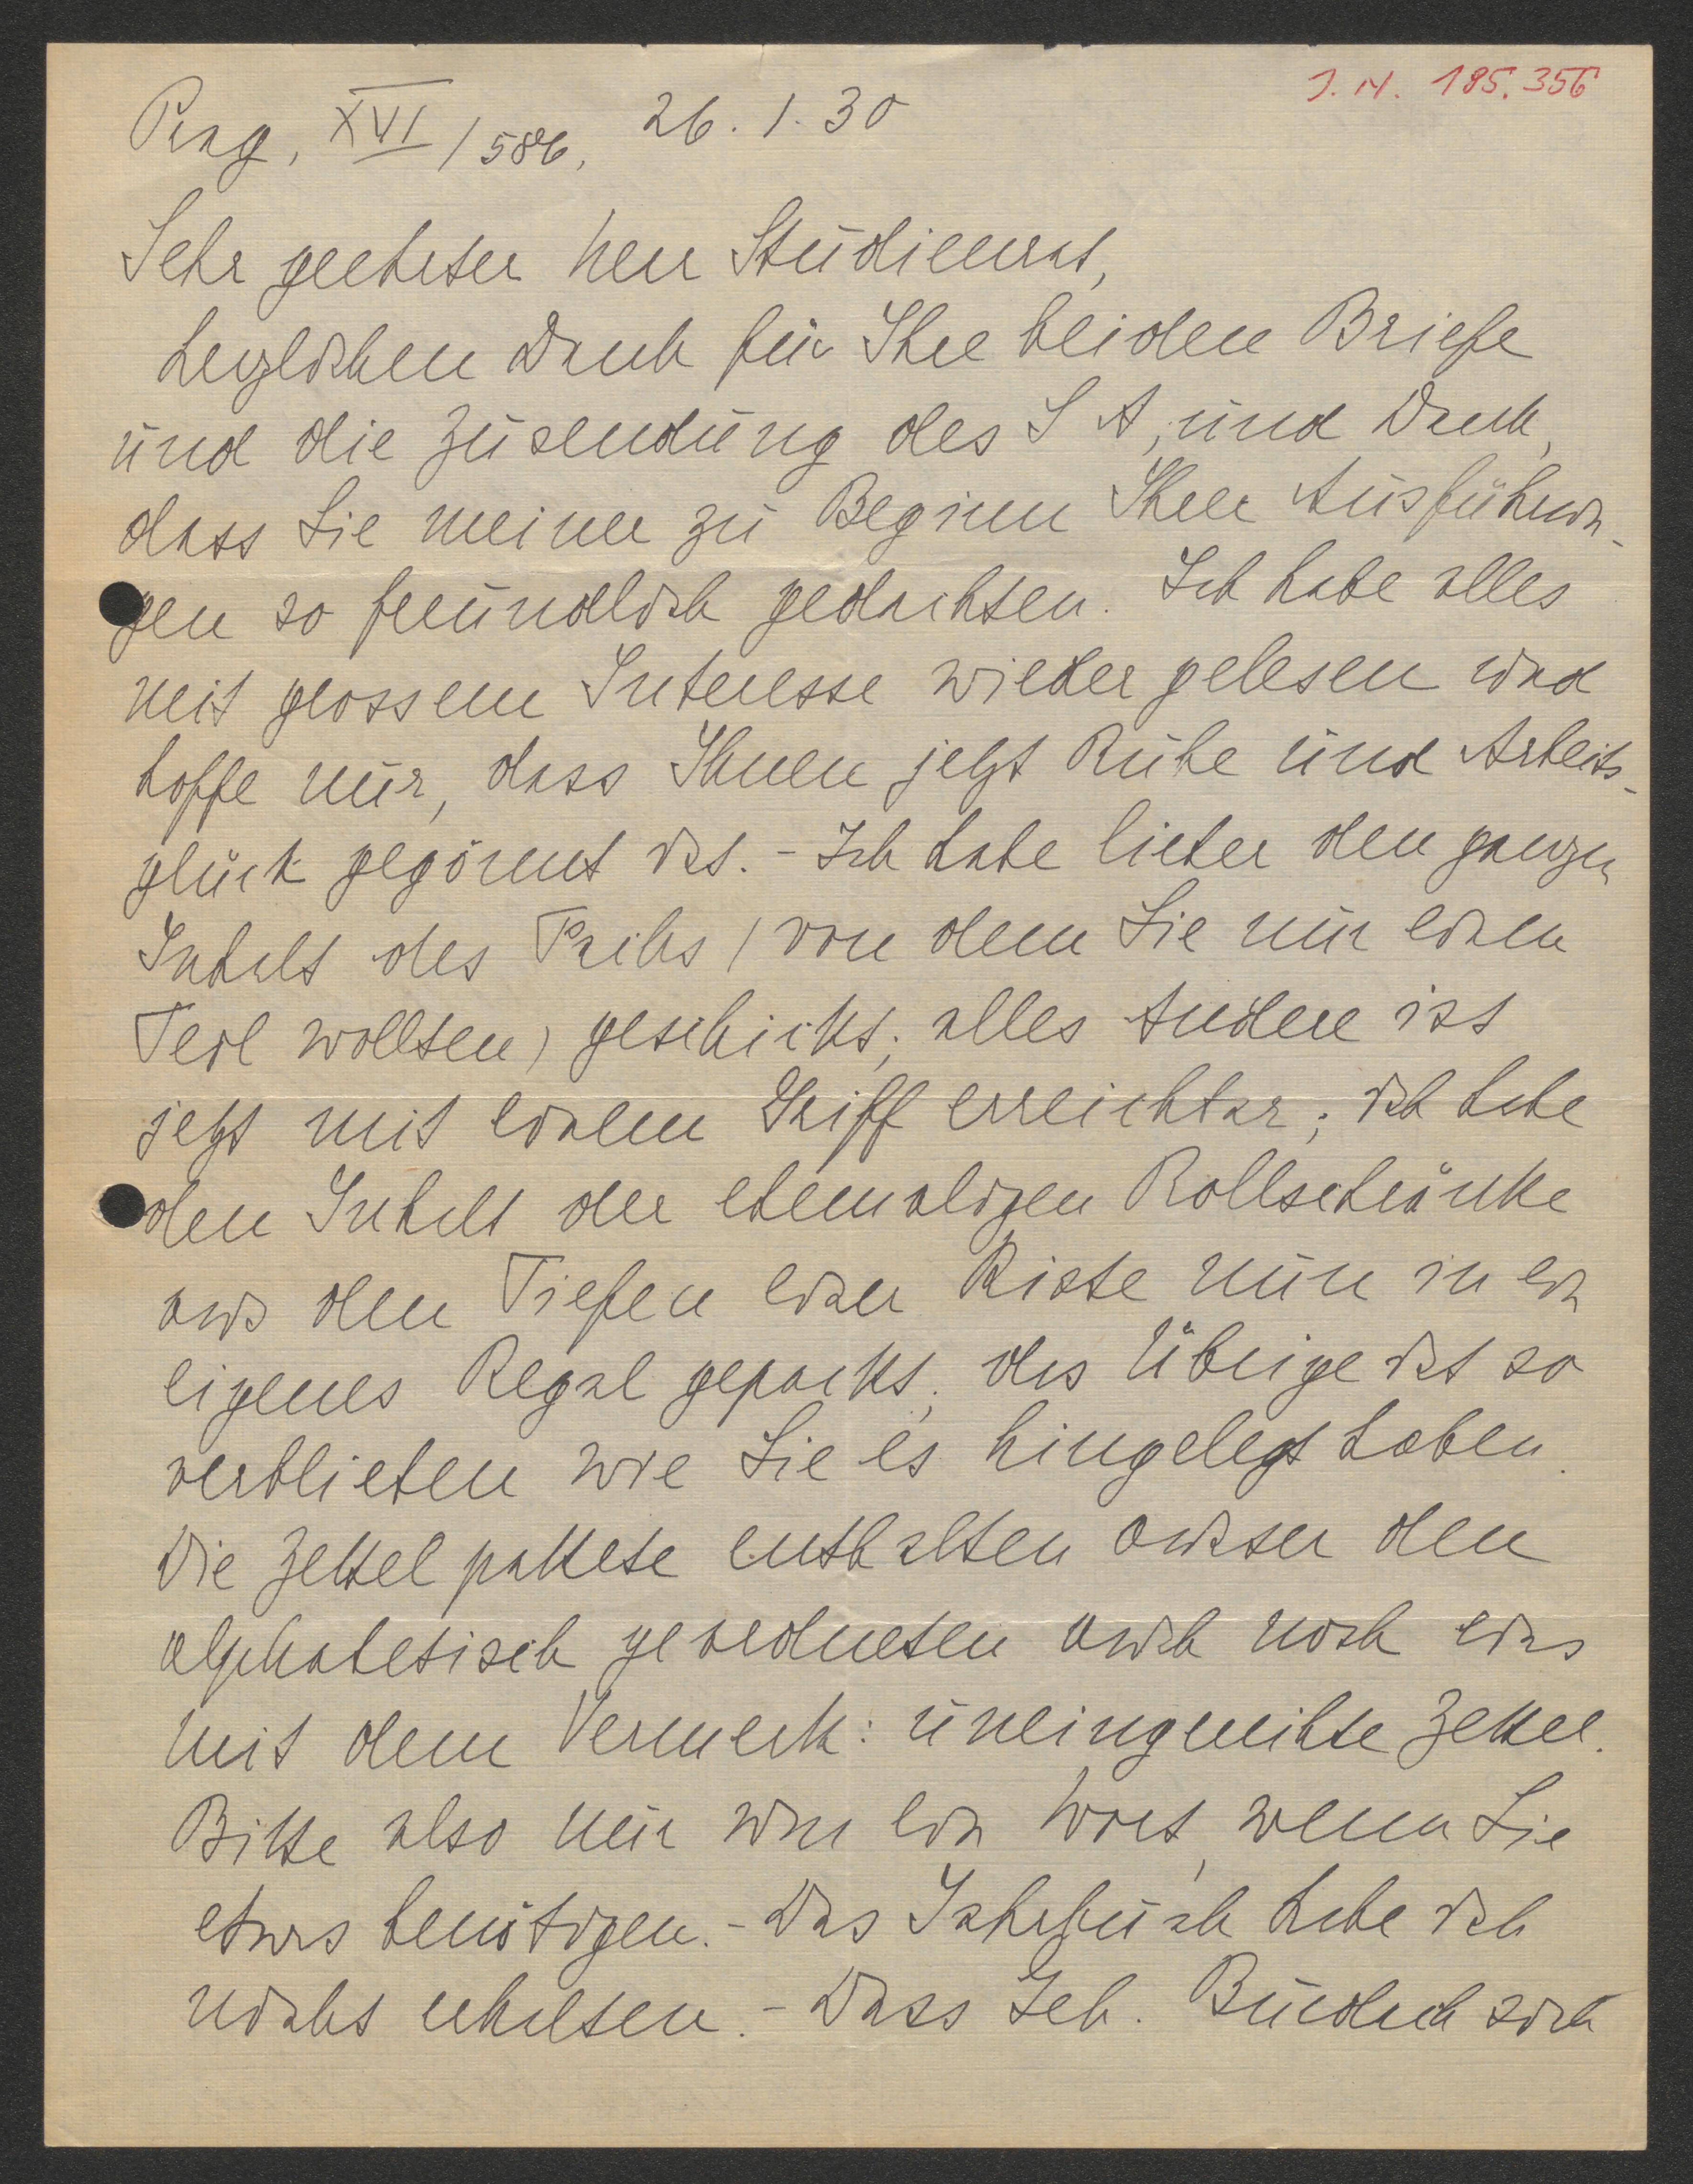 J. N. 185.356
Prag, XVI / 586, 26. 1. 30
Sehr geehrter Herr Studienrat,
herzlichen Dank für Ihre beiden Briefe
und die Zusendung des S A, und Dank,
dass Sie meiner zu Beginn Ihrer Ausführun-
gen so freundlich gedachten. Ich habe alles
mit grossem Interesse wieder gelesen und
hoffe nur, dass Ihnen jetzt Ruhe und Arbeits-
glück gegönnt ist. - Ich habe lieber den ganzen
Inhalt des Pakets (von dem Sie nur einen
Teil wollten) geschickt; alles Andere ist
jetzt mit einem Griff erreichbar; ich habe
den Inhalt der ehemaligen Rollschränke
aus den Tiefen einer Kiste nun in ein
eigenes Regal gepackt, das Übrige ist so
verblieben wie Sie es hingelegt haben.
Die Zettelpakete enthalten ausser den
alphabetisch geordneten auch noch eins
mit dem Vermerk: uneingereihte Zettel.
Bitte also mir nur ein Wort, wenn Sie
etwas benötigen. - Das Jahrbuch habe ich
nicht erhalten. - Dass Geh. Burdach sich